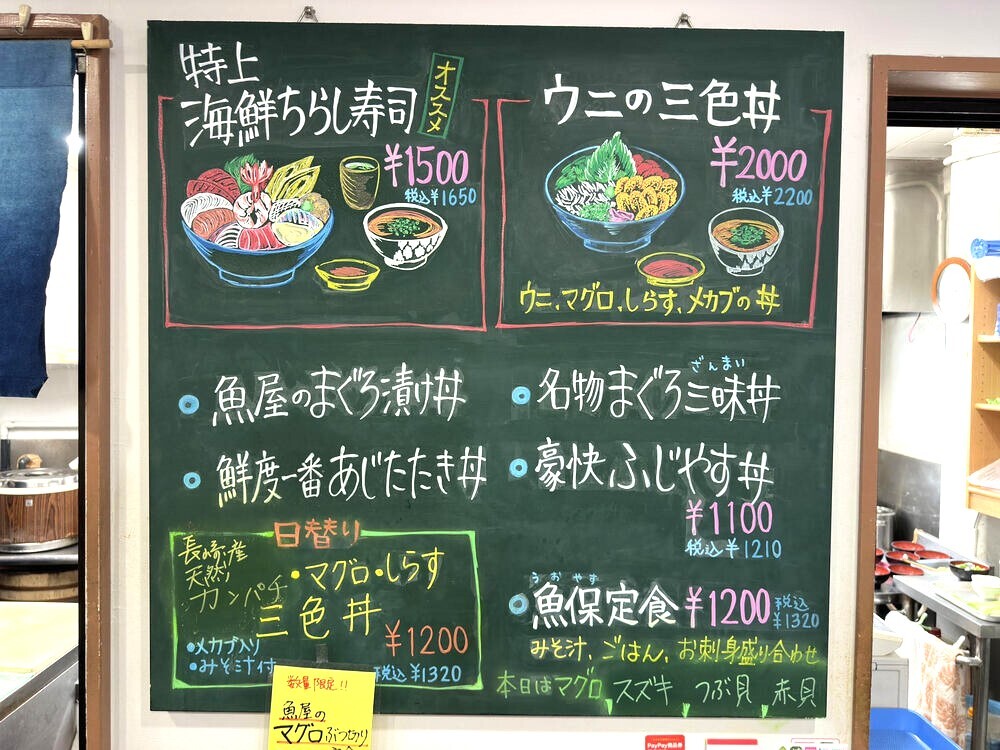 特上
海鮮ちらし寿司
オススメ
¥1500
税込¥1650
ウニの三色丼
¥2000
税込¥2200
ウニ、マグロ、しらす、メカブの丼
魚屋のまぐろ漬け丼
鮮度一番あじたたき丼
ざんまい
名物まぐろ三昧丼
豪快ふじやす丼
¥1100
税込¥1210
日替り
長崎産
天然
カンパチ・マグロ・しらす
三色丼
¥1200
・メカブ入り
・みそ汁付
税込¥1320
うおやす
魚保定食¥1200
税込
¥1320
みそ汁、ごはん、お刺身盛り合わせ
本日はマグロ スズキ つぶ貝 赤貝
数量限定!!
魚屋の
マグロぶつ切り
PayPay商品券